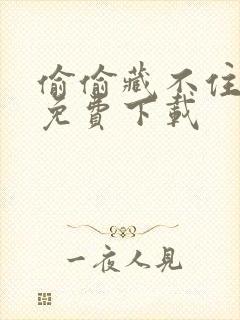 偷偷藏不住
免費下載
一夜人見